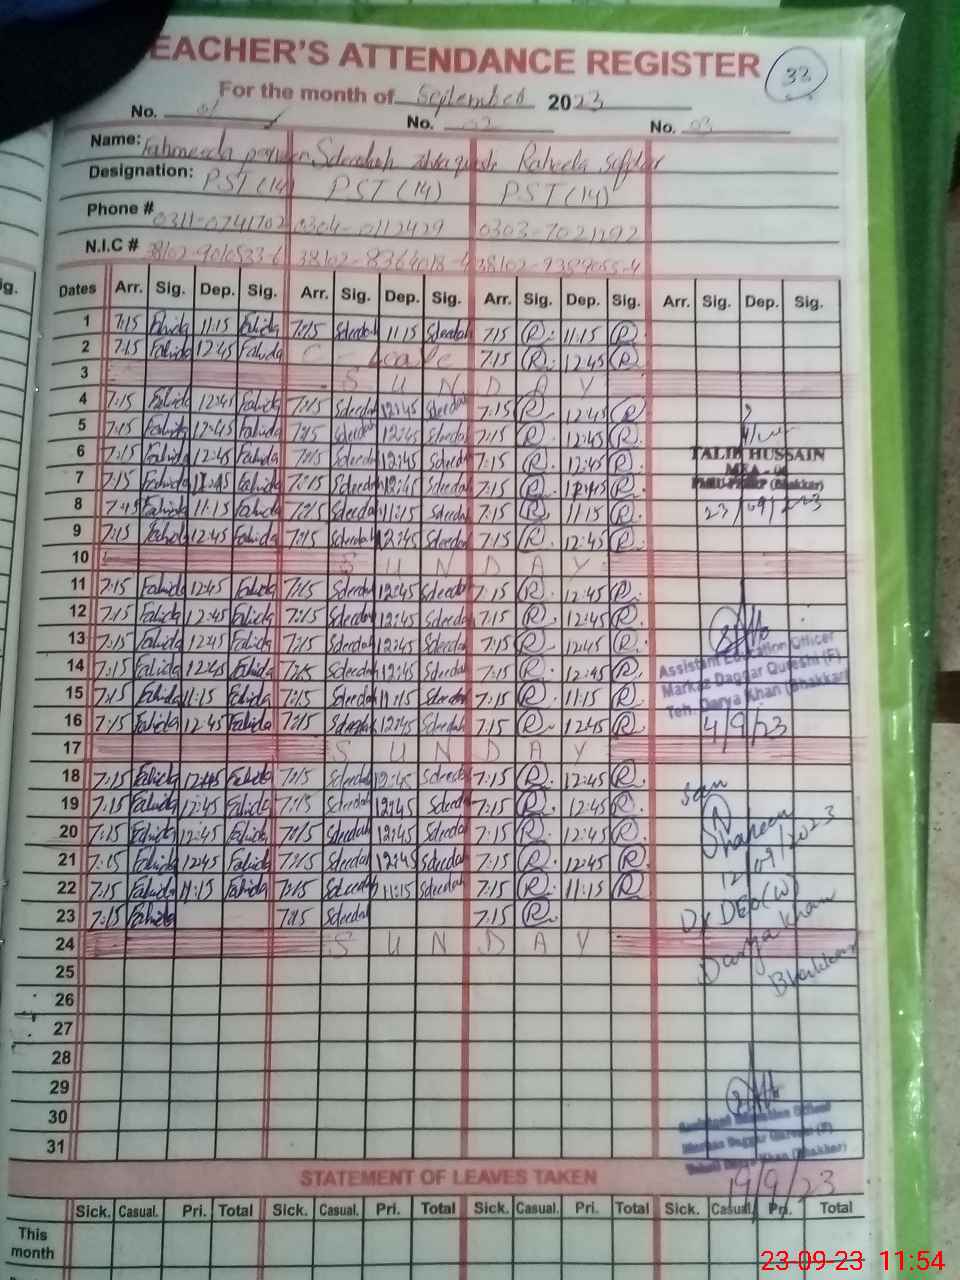 EACHER'S ATTENDANCE REGISTER 33
For the month of September 2023
No. 01 No. 02 No. 03
Name: Fahmeeda Sdeedah Raheela
Designation: PST (14) PST (14) PST (14)
Phone # 0311-0741702 0304-0112429 0303-7021292
N.I.C #
ig. Dates Arr. Sig. Dep. Sig. Arr. Sig. Dep. Sig. Arr. Sig. Dep. Sig. Arr. Sig. Dep. Sig.
1 7:15 Fahida 11:15 Fahida 7:15 Sdeedah 11:15 Sdeedah 7:15 R. 11:15 R.
2 7:15 Fahida 12:45 Fahida C - Leave 7:15 R. 12:45 R.
3 S U N D A Y
4 7:15 Fahida 12:45 Fahida 7:15 Sdeedah 12:45 Sdeedah 7:15 R. 12:45 R.
5 7:15 Fahida 12:45 Fahida 7:15 Sdeedah 12:45 Sdeedah 7:15 R. 12:45 R.
6 7:15 Fahida 12:45 Fahida 7:15 Sdeedah 12:45 Sdeedah 7:15 R. 12:45 R. TALIB HUSSAIN
7 7:15 Fahida 12:45 Fahida 7:15 Sdeedah 12:45 Sdeedah 7:15 R. 12:45 R. (Bhakkar)
8 7:15 Fahida 11:15 Fahida 7:15 Sdeedah 11:15 Sdeedah 7:15 R. 11:15 R. 23/09/23
9 7:15 Fahida 12:45 Fahida 7:15 Sdeedah 12:45 Sdeedah 7:15 R. 12:45 R.
10 S U N D A Y
11 7:15 Fahida 12:45 Fahida 7:15 Sdeedah 12:45 Sdeedah 7:15 R. 12:45 R.
12 7:15 Fahida 12:45 Fahida 7:15 Sdeedah 12:45 Sdeedah 7:15 R. 12:45 R.
13 7:15 Fahida 12:45 Fahida 7:15 Sdeedah 12:45 Sdeedah 7:15 R. 12:45 R. Assistant Education Officer
14 7:15 Fahida 12:45 Fahida 7:15 Sdeedah 12:45 Sdeedah 7:15 R. 12:45 R. Markaz Daggar Qureshi (F)
15 7:15 Fahida 11:15 Fahida 7:15 Sdeedah 11:15 Sdeedah 7:15 R. 11:15 R. Teh. Darya Khan (Bhakkar)
16 7:15 Fahida 12:45 Fahida 7:15 Sdeedah 12:45 Sdeedah 7:15 R. 12:45 R. 4/9/23
17 S U N D A Y
18 7:15 Fahida 12:45 Fahida 7:15 Sdeedah 12:45 Sdeedah 7:15 R. 12:45 R. seen
19 7:15 Fahida 12:45 Fahida 7:15 Sdeedah 12:45 Sdeedah 7:15 R. 12:45 R.
20 7:15 Fahida 12:45 Fahida 7:15 Sdeedah 12:45 Sdeedah 7:15 R. 12:45 R. Shaheen
21 7:15 Fahida 12:45 Fahida 7:15 Sdeedah 12:45 Sdeedah 7:15 R. 12:45 R. 12/09/2023
22 7:15 Fahida 11:15 Fahida 7:15 Sdeedah 11:15 Sdeedah 7:15 R. 11:15 R.
23 7:15 Fahida 7:15 Sdeedah 7:15 R. Dy DEO (W)
24 S U N D A Y Darya Khan
25 Bhakkar
26
27
28
29
30
31
19/9/23
STATEMENT OF LEAVES TAKEN
Sick. Casual. Pri. Total Sick. Casual. Pri. Total Sick. Casual. Pri. Total Sick. Casual. Pri. Total
This month
23-09-23 11:54